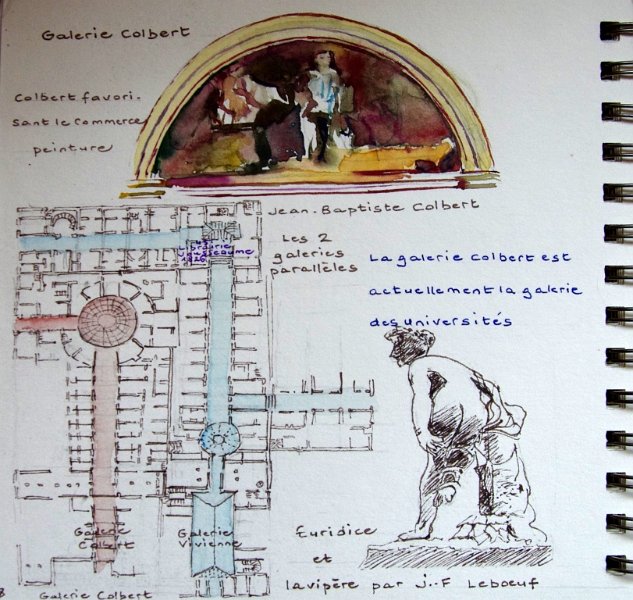 Galerie Colbert
Colbert favori-
sant le commerce
peinture
Jean-Baptiste Colbert
Les 2
galeries
parallèles
La galerie Colbert est
actuellement la galerie
des universités
Librairie
Jousseaume
1826
Galerie
Colbert
Galerie
Vivienne
Euridice
et
la vipère par J.-F Leboeuf
8
Galerie Colbert